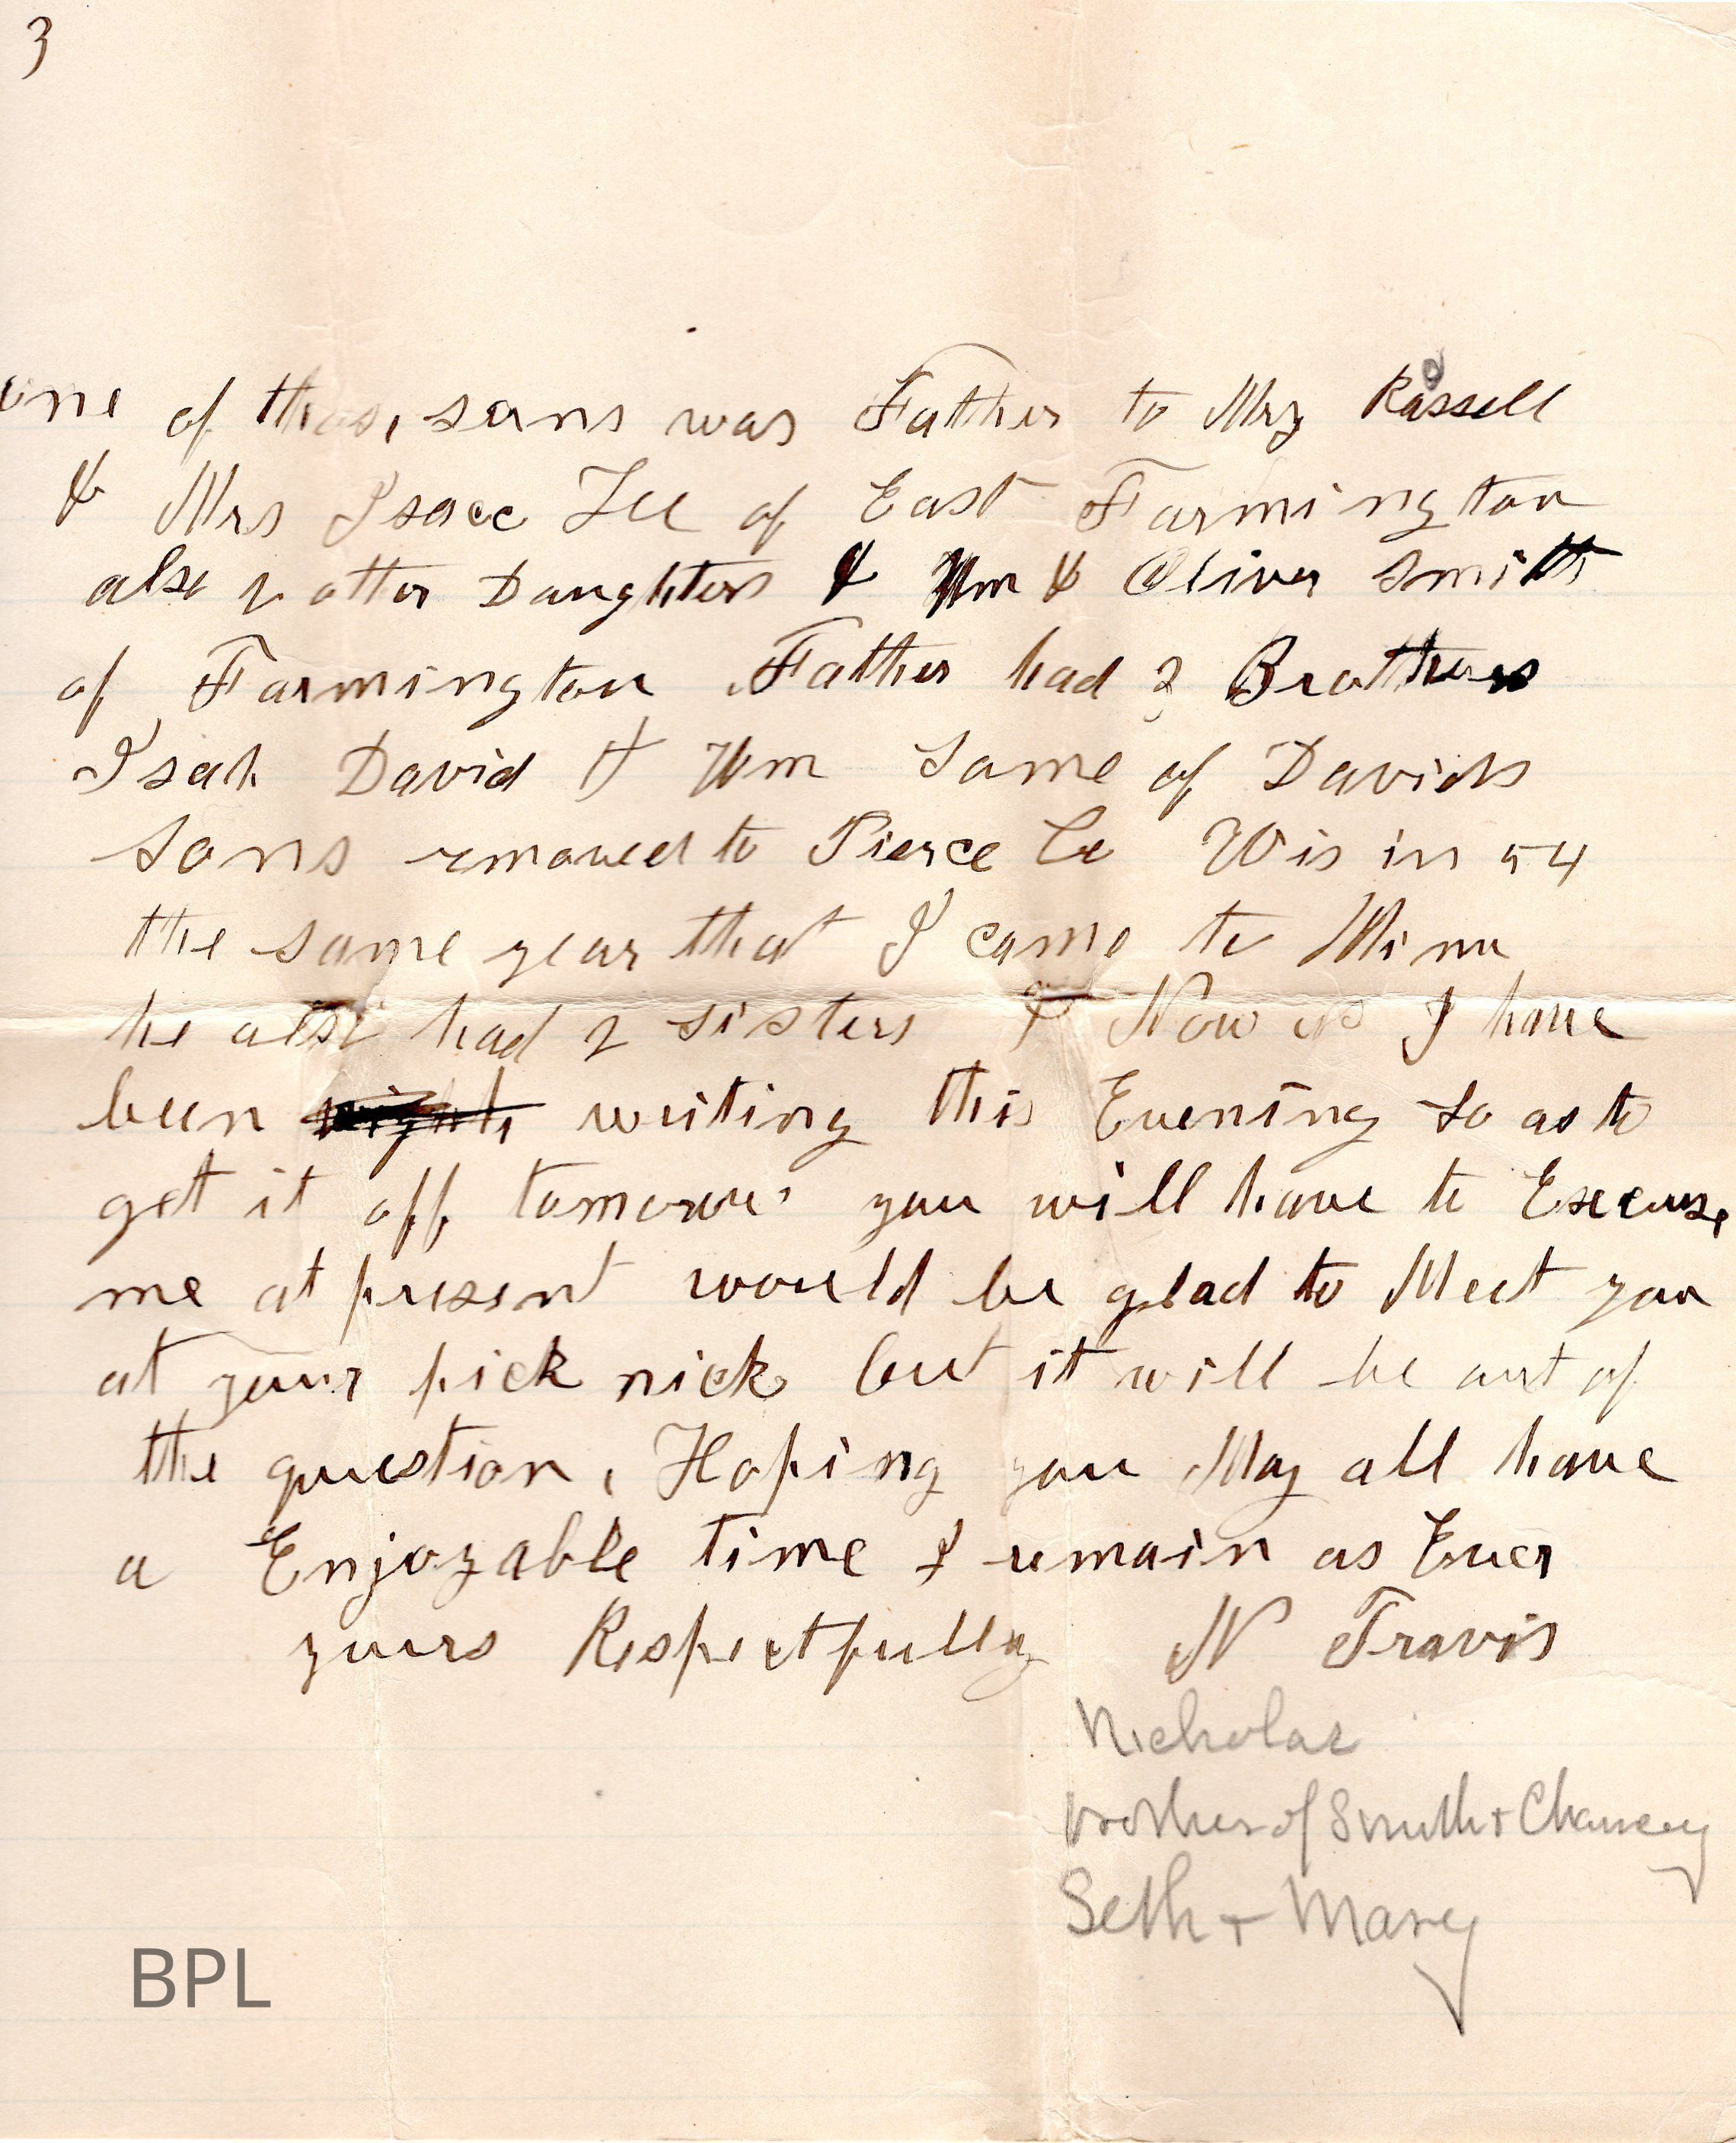 3
one of those sons was Father to Mrs Rassell
& Mrs Isacc Lee of East Farmington
also 2 other Daughters & Wm & Oliver Smith
of Farmington Father had 3 Brothers
Isah David & Wm Some of Davids
Sons removed to Pierce Co Wis in 54
the same year that I came to Minn
he also had 2 sisters & Now as I have
been writing this Evening so as to
get it off tomorow you will have to Excuse
me at present would be glad to Meet you
at your pick nick but it will be out of
the question, Hoping you May all have
a Enjoyable time I remain as Ever
yours Respectfully N Travis
Nicholas
brother of Smith + Chancey
Seth + Mary
BPL